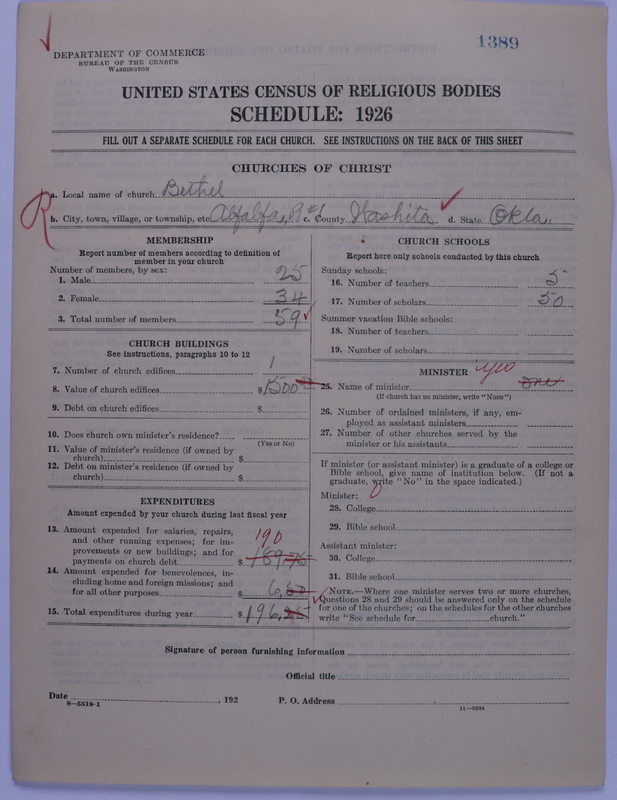 1389
DEPARTMENT OF COMMERCE
BUREAU OF THE CENSUS
WASHINGTON
UNITED STATES CENSUS OF RELIGIOUS BODIES
SCHEDULE: 1926
FILL OUT A SEPARATE SCHEDULE FOR EACH CHURCH. SEE INSTRUCTIONS ON THE BACK OF THIS SHEET
CHURCHES OF CHRIST
a. Local name of church Bethel
b. City, town, village, or township, etc. Alfalfa, R#1 c. County Washita d. State Okla.
MEMBERSHIP
Report number of members according to definition of
member in your church
Number of members, by sex:
1. Male 25
2. Female 34
3. Total number of members 59
CHURCH BUILDINGS
See instructions, paragraphs 10 to 12
7. Number of church edifices 1
8. Value of church edifices $1500
9. Debt on church edifices $
10. Does church own minister's residence?
(Yes or No)
11. Value of minister's residence (if owned by
church) $
12. Debt on minister's residence (if owned by
church) $
EXPENDITURES
Amount expended by your church during last fiscal year
13. Amount expended for salaries, repairs,
and other running expenses; for im-
provements or new buildings; and for
payments on church debt $ 190 189.75
14. Amount expended for benevolences, in-
cluding home and foreign missions; and
for all other purposes $ 6.50
15. Total expenditures during year $ 196.25
CHURCH SCHOOLS
Report here only schools conducted by this church
Sunday schools:
16. Number of teachers 5
17. Number of scholars 50
Summer vacation Bible schools:
18. Number of teachers
19. Number of scholars
MINISTER yes
25. Name of minister one
(If church has no minister, write "None")
26. Number of ordained ministers, if any, em-
ployed as assistant ministers
27. Number of other churches served by the
minister or his assistants
If minister (or assistant minister) is a graduate of a college or
Bible school, give name of institution below. (If not a
graduate, write "No" in the space indicated.)
Minister: 0
28. College
29. Bible school
Assistant minister:
30. College
31. Bible school
NOTE.—Where one minister serves two or more churches,
Questions 28 and 29 should be answered only on the schedule
for one of the churches; on the schedules for the other churches
write "See schedule for church."
Signature of person furnishing information
Official title
Date , 192 P. O. Address
8—5518-1
11—9204